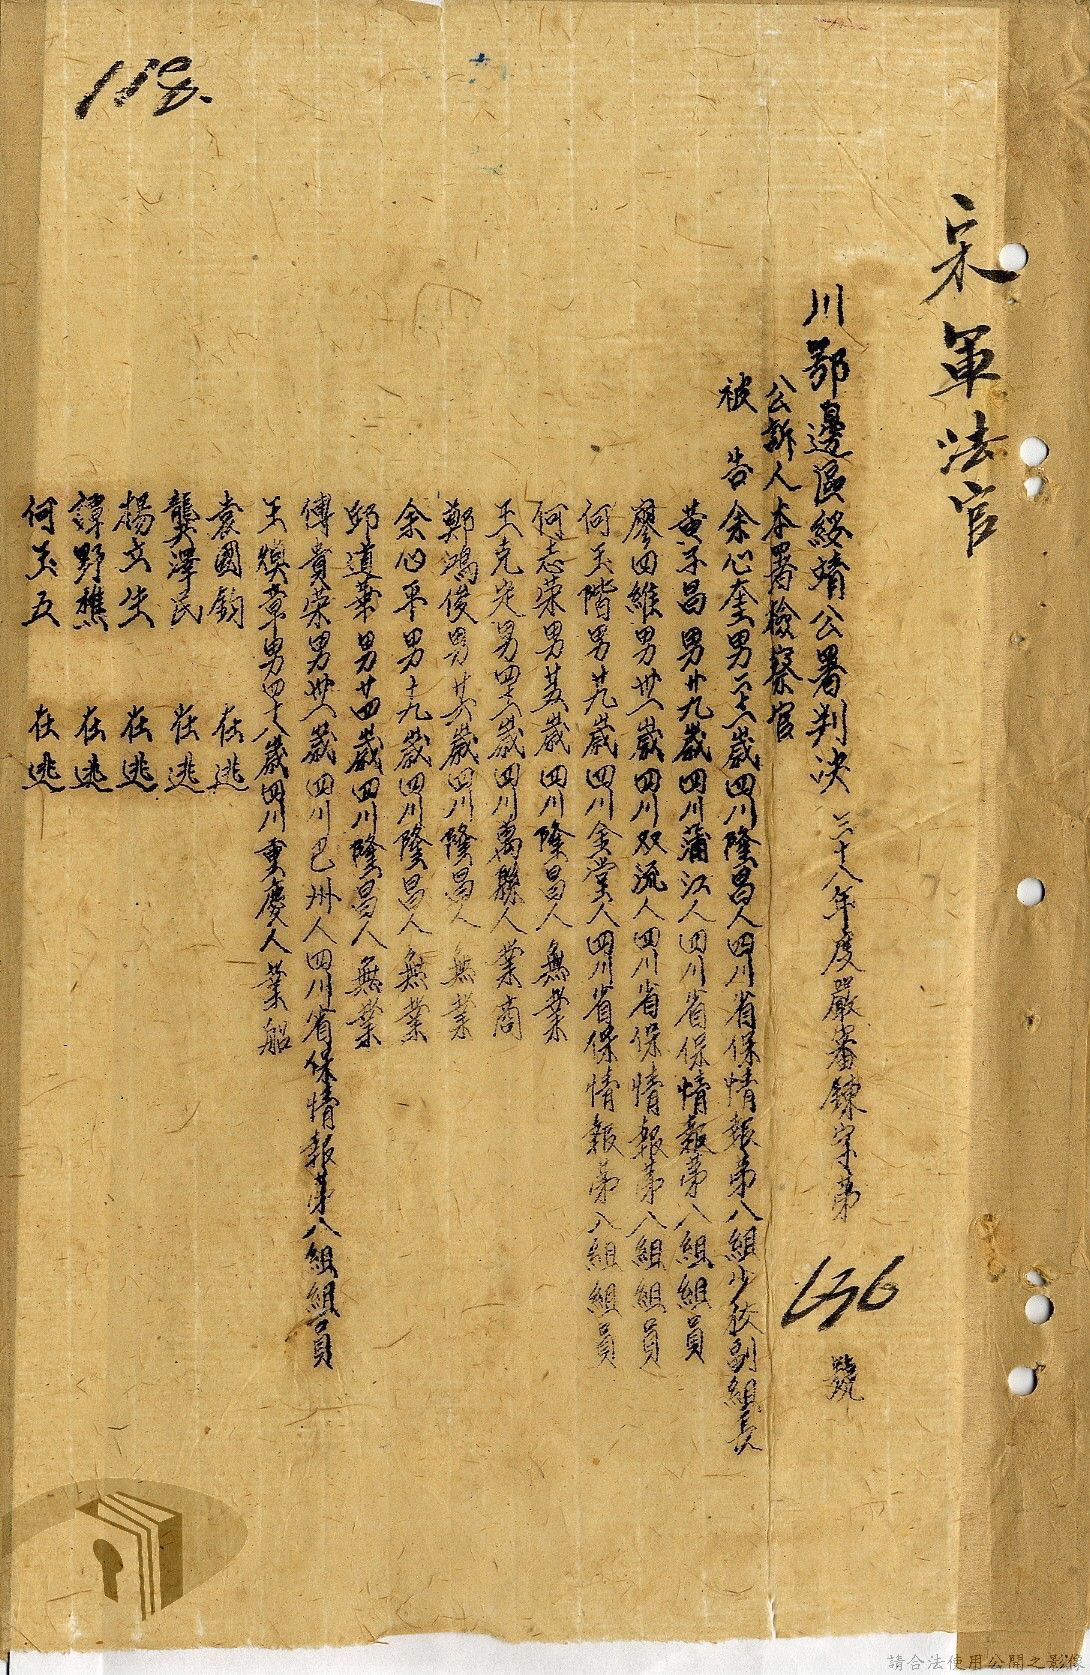 宋軍法官
川鄂邊區綏靖公署判決 三十八年度嚴審鍊字第636號
公訴人本署檢察官
被告余心奎男三十三歲四川隆昌人四川省保情報第八組少校副組長
黃子昌男廿九歲四川蒲江人四川省保情報第八組組員
廖四維男卅一歲四川双流人四川省保情報第八組組員
何玉階男廿九歲四川金堂人四川省保情報第八組組員
何志榮男廿五歲四川隆昌人無業
王克定男四十六歲四川萬縣人業商
鄭鴻俊男廿六歲四川隆昌人無業
余心平男十九歲四川隆昌人無業
邱道華男廿四歲四川隆昌人無業
傅貴榮男卅一歲四川巴州人四川省保情報第八組組員
王煥章男四十八歲四川重慶人業船
袁國鈞 在逃
龔澤民 在逃
楊立生 在逃
譚野樵 在逃
何玉五 在逃
118.
請合法使用公開之影像